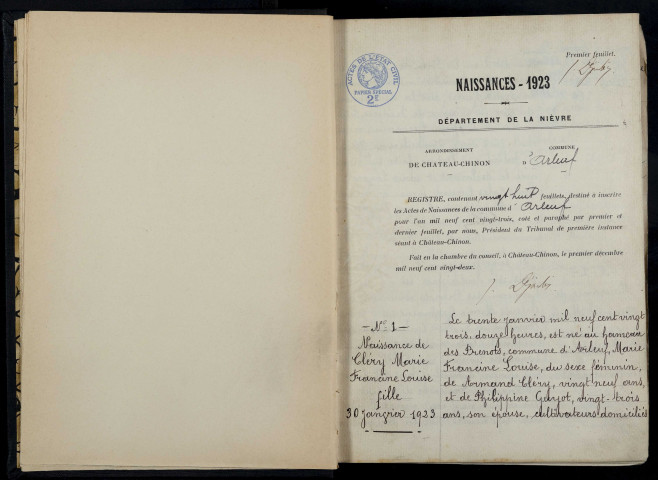 Premier feuillet.
ACTES DE L'ETAT CIVIL
PAPIER SPECIAL
2F
NAISSANCES - 1923
DÉPARTEMENT DE LA NIÈVRE
ARRONDISSEMENT
COMMUNE
DE CHATEAU-CHINON
d'Arleuf
REGISTRE, contenant vingt huit feuillets, destiné à inscrire
les Actes de Naissances de la commune d'Arleuf
pour l'an mil neuf cent vingt-trois, coté et paraphé par premier et
dernier feuillet, par nous, Président du Tribunal de première instance
séant à Château-Chinon.
Fait en la chambre du conseil, à Château-Chinon, le premier décembre
mil neuf cent vingt-deux.
- N° 1 -
Naissance de
Cléry Marie
Francine Louise
fille
30 janvier 1923
Le trente janvier mil neuf cent vingt
trois, douze heures, est né au hameau
des Brenots, commune d'Arleuf, Marie
Francine Louise, du sexe féminin,
de Armand Cléry, vingt neuf ans,
et de Philippine Guyot, vingt-trois
ans, son épouse, cultivateurs domiciliés